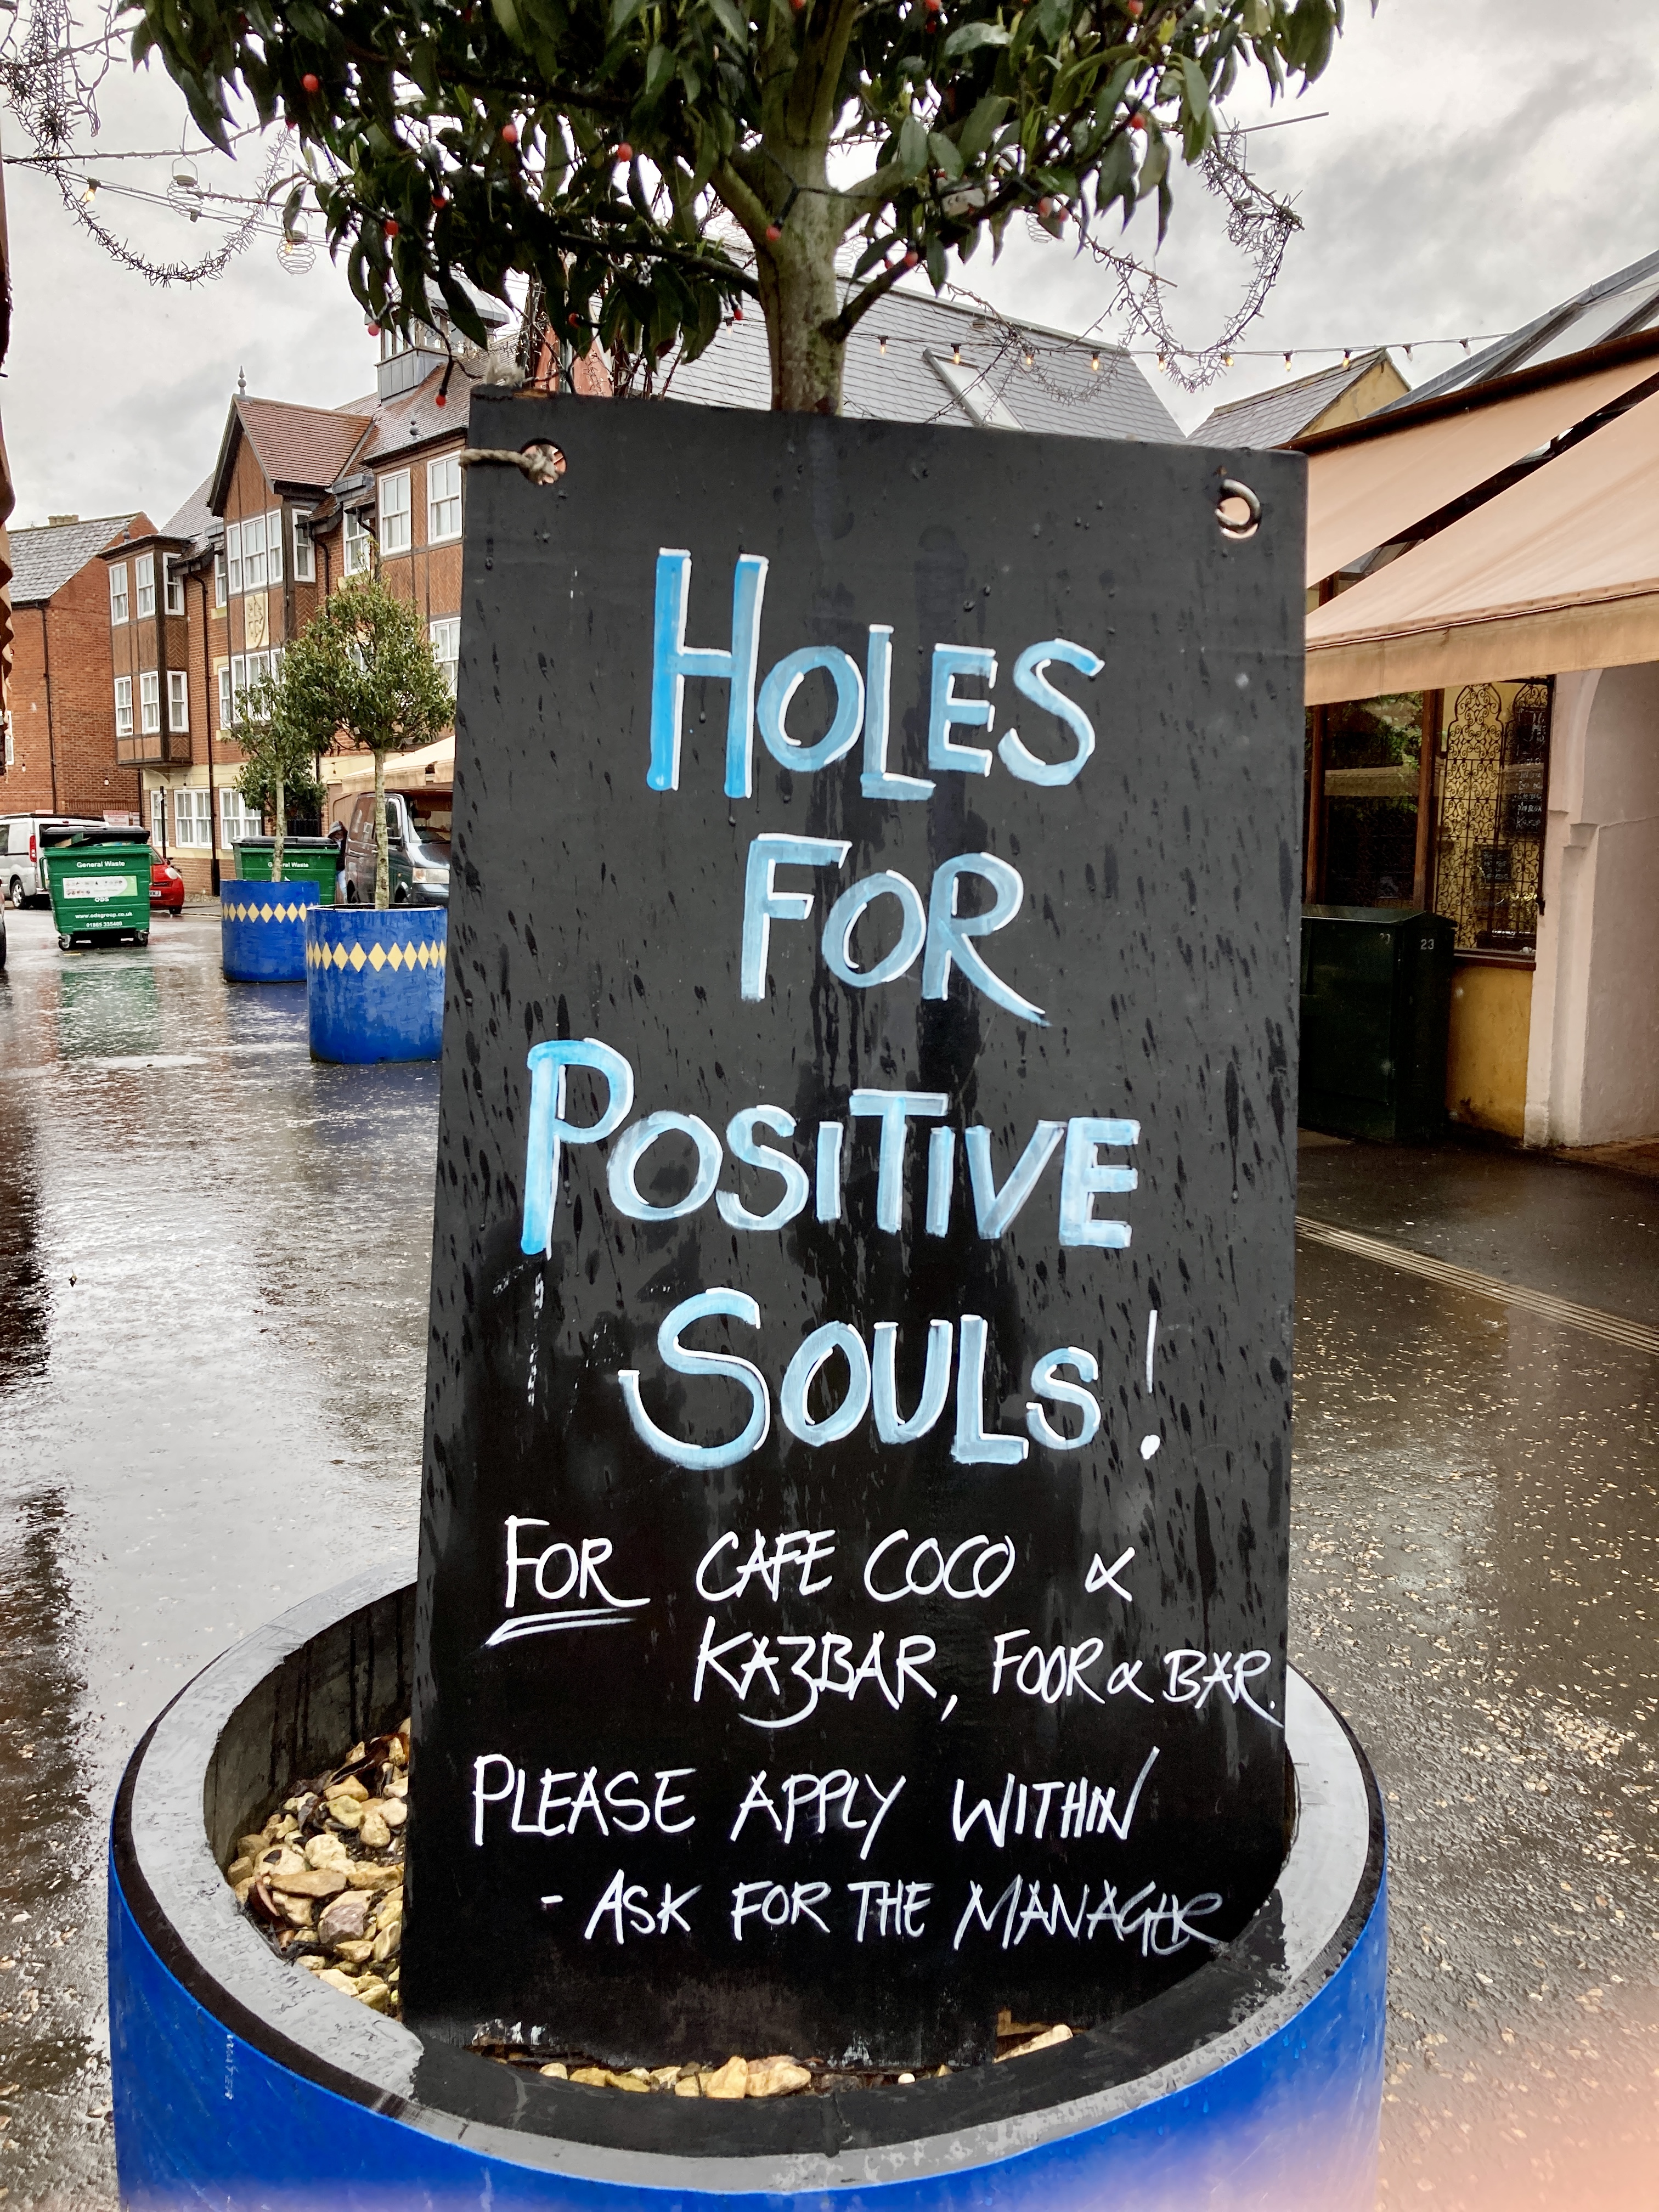 HOLES
FOR
POSITIVE
SOULS!
FOR CAFE COCO &
KAZBAR, FOOR & BAR.
PLEASE APPLY WITHIN
- ASK FOR THE MANAGER
General Waste
ODS
www.odsgroup.co.uk
General Waste
23